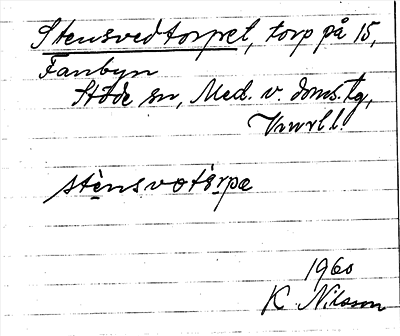 Stensvedtorpet, torp på 15,
Fanbyn
Stöde sn, Med. v. doms. tg,
Vnrl l.
stènsvotàrpə
1960
K. Nilsson